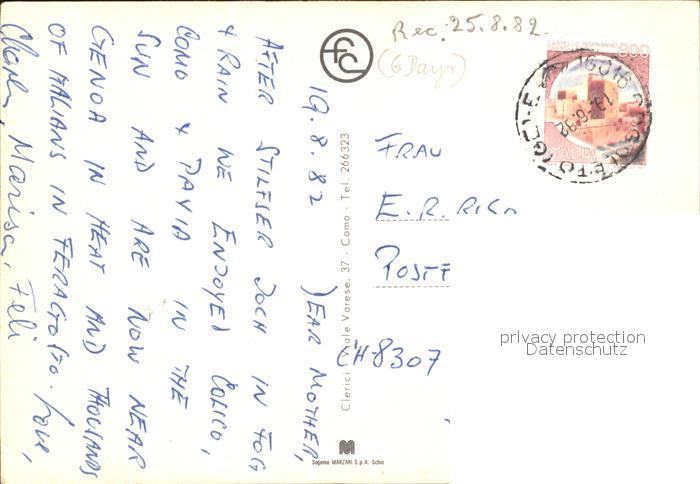 19.8.82
DEAR MOTHER,
AFTER STILFSER JOCH IN FOG
& RAIN WE ENJOYED COLICO,
COMO & PAVIA IN THE
SUN AND ARE NOW NEAR
GENOA IN HEAT AND THOUSANDS
OF ITALIANS IN FERAGOSTO. Love,
Marisa, Feli
Rec. 25.8.82.
(6 Days)
CASTELLO NORMANNO
300
ITALIA
16016
FRAU
E. R.
POSTF
CH-8307
Clerici - Viale Varese, 37 - Como - Tel. 266323
M
Sogema MARZARI S.p.A. Schio
privacy protection
Datenschutz